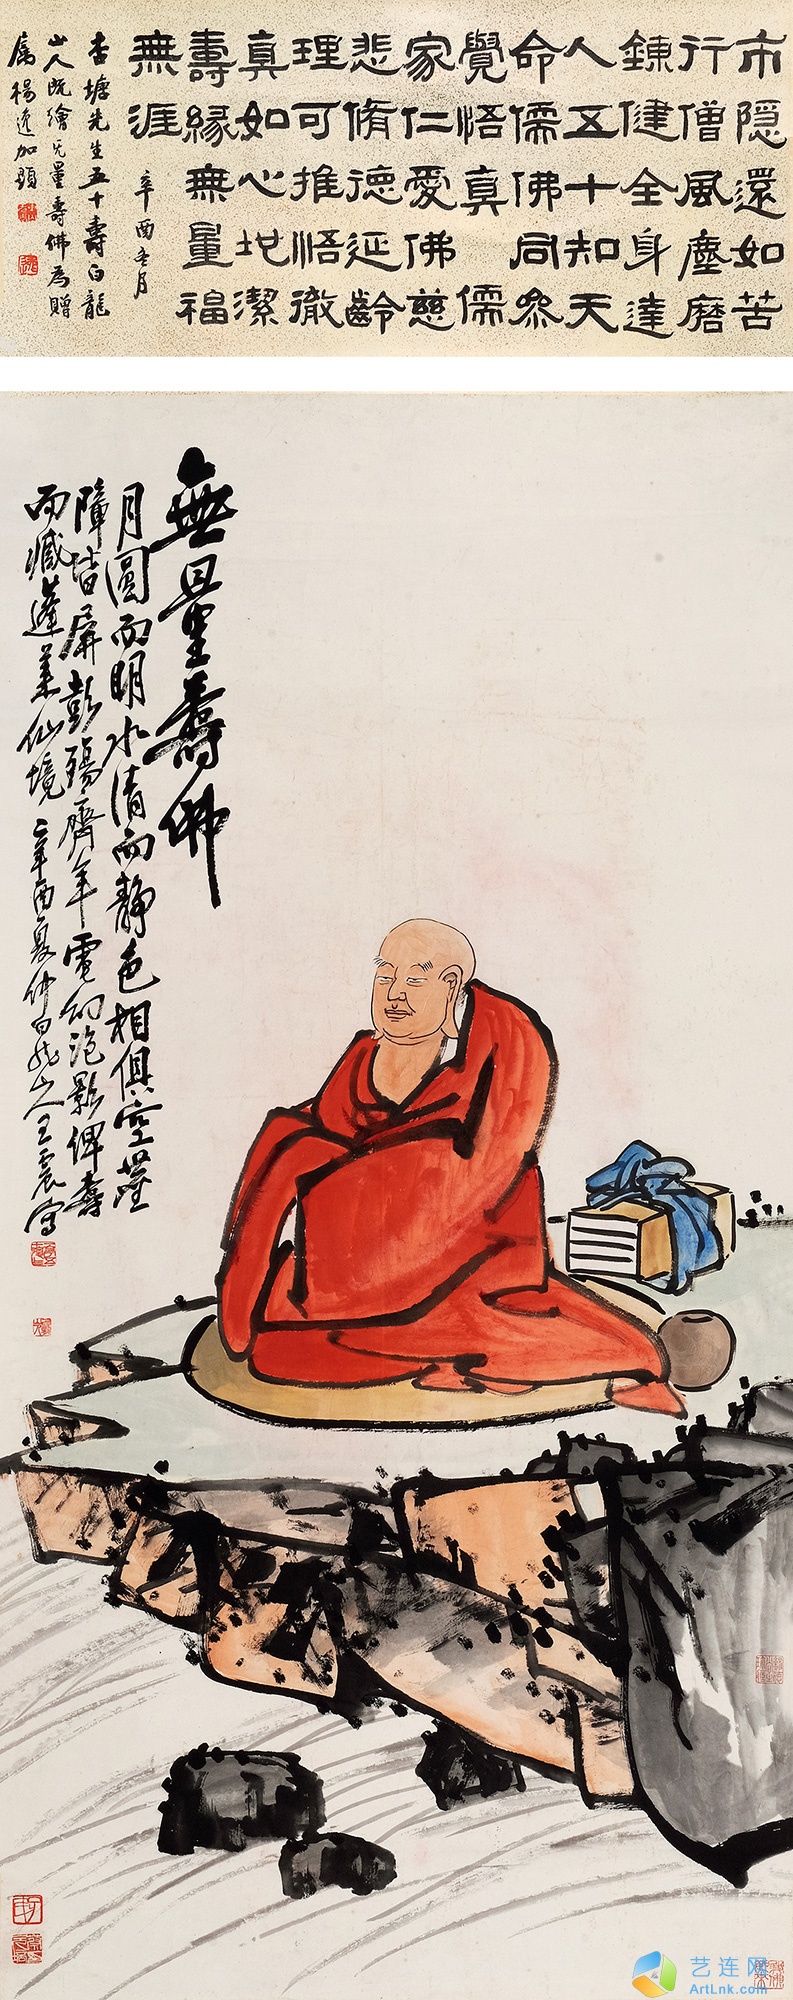 市隱還如苦
行僧風塵磨
鍊健全身達
人五十知天
命儒佛同參
覺悟真儒
家仁愛佛慈
悲脩德延齡
理可推悟徹
真如心地潔
壽緣無量福
無涯
辛酉冬月
杏塘先生五十壽白龍
山人既繪无量壽佛為贈
屬楊逸加題
無量壽佛
月圓而明水清而靜色相俱空蘿
障皆屏彭殤齊年電幻泡影俾壽
而臧蓬萊仙境
辛酉夏仲白龍山人王震寫
艺连网
ArtLnk.com